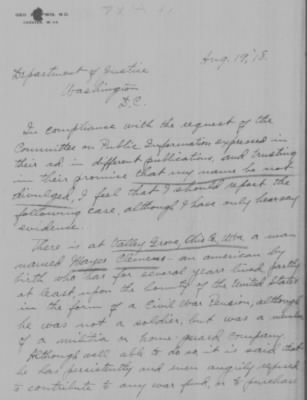 GEO. M.D.
CHESTER, W. VA.
Aug. 19, '18.
Department of Justice
Washington
D.C.
In compliance with the request of the
Committee on Public Information expressed in
their ad. in different publications, and trusting
in their promise that my name be not
divulged, I feel that I should report the
following case, although I have only hearsay
evidence.
There is at Valley Grove, Ohio Co., W.Va. a man
named Hayes Clemens - an american by
birth who has for several years lived partly
at least, upon the bounty of the United States
in the form of a Civil War Pension, although
he was not a soldier, but was a member
of a militia or home-guard company.
Although well able to do so, it is said that
he has persistently and even angrily refused
to contribute to any war fund, or to purchase